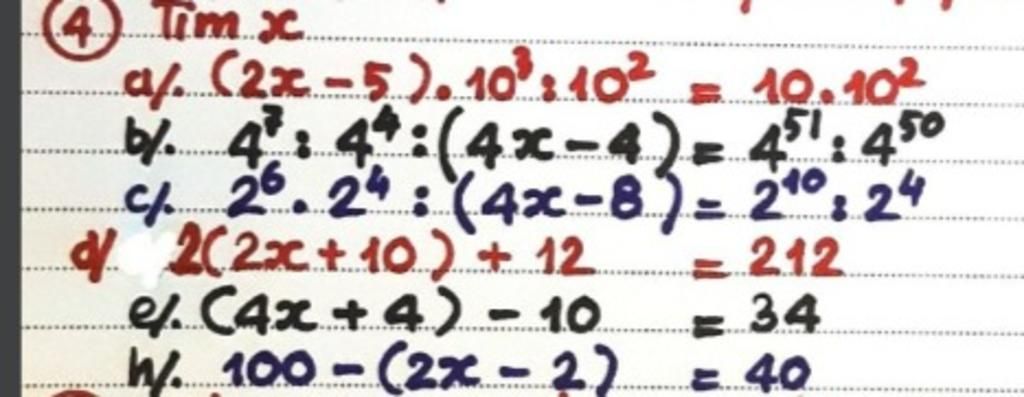 ④ Tìm x
a/. (2x - 5). 10³ : 10² = 10.10²
b/. 4⁷ : 4⁴ : (4x - 4) = 4⁵¹ : 4⁵⁰
c/. 2⁶ . 2⁴ : (4x - 8) = 2¹⁰ : 2⁴
d/ 2(2x + 10) + 12 = 212
e/. (4x + 4) - 10 = 34
h/. 100 - (2x - 2) = 40